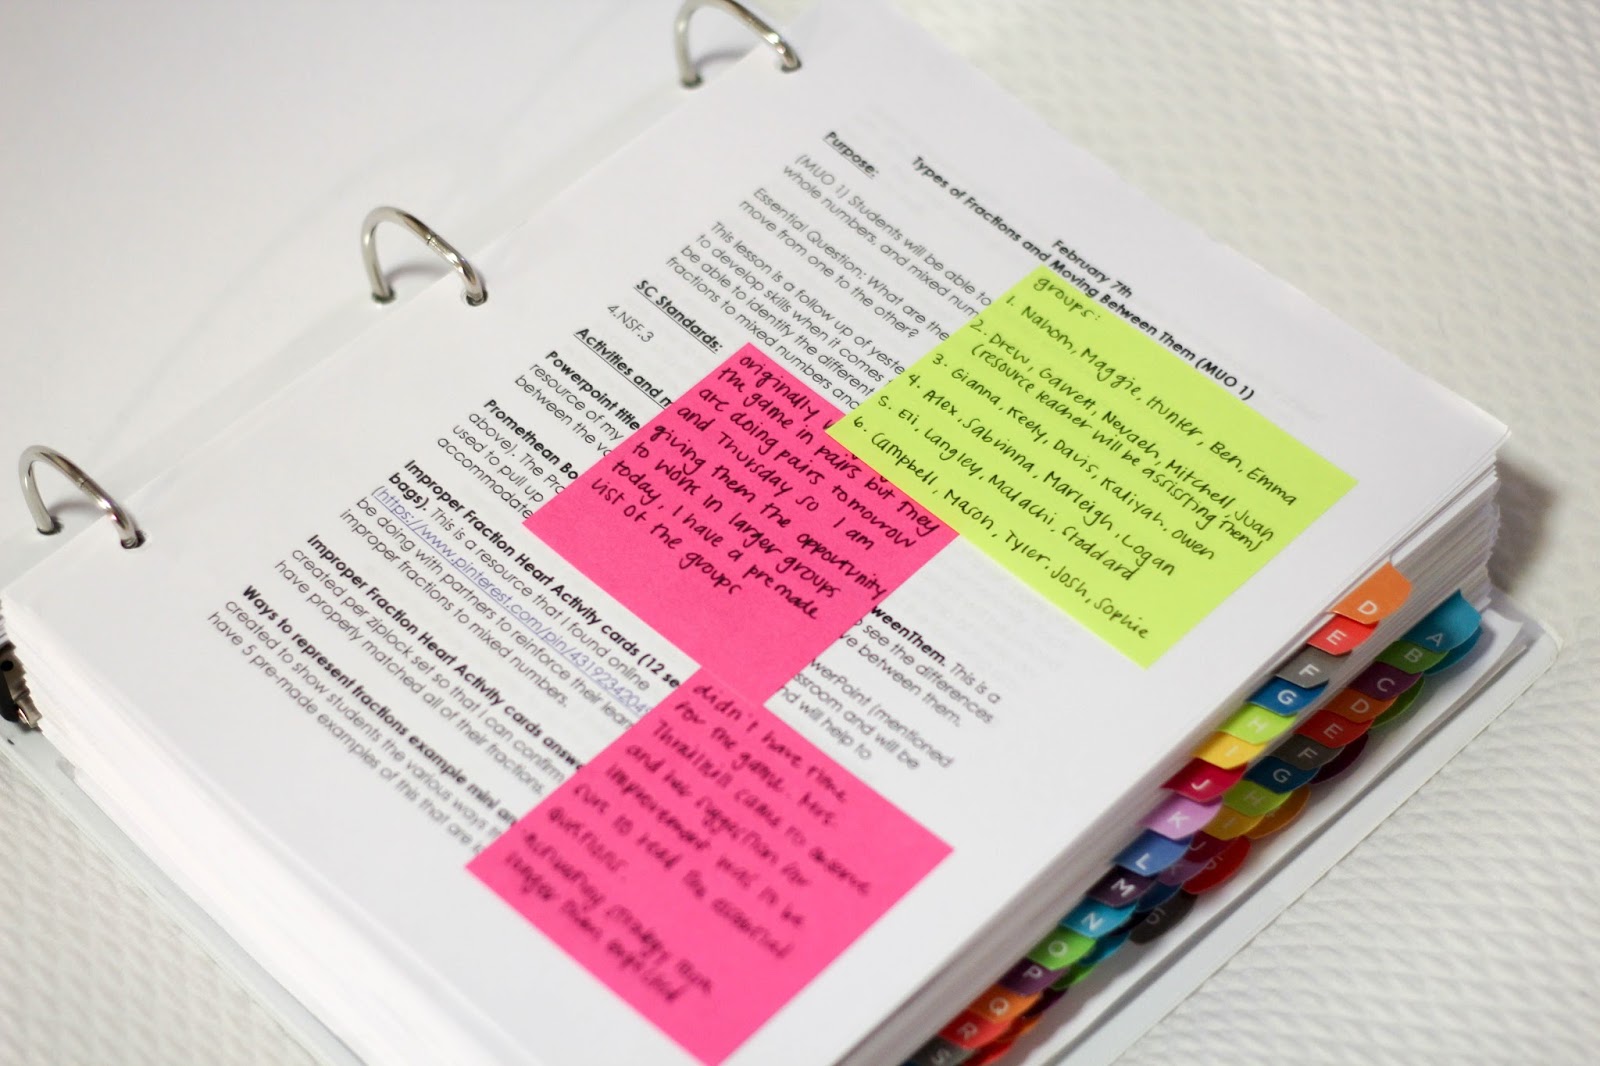 February 7th
Types of Fractions and Moving Between Them (MUO 1)
Purpose:
(MUO 1) Students will be able to
whole numbers, and mixed num
Essential Question: What are the
move from one to the other?
This lesson is a follow up of yeste
to develop skills when it comes t
be able to identify the different
fractions to mixed numbers and
SC Standards:
4.NSF.3
Activities and m
Powerpoint title weenThem. This is a
resource of my see the differences
between the va ve between them.
Promethean Bo werPoint (mentioned
above). The Pro ssroom and will be
used to pull up nd will help to
accommodate
Improper Fraction Heart Activity cards (12 se
bags). This is a resource that I found online
(https://www.pinterest.com/pin/431923420
be doing with partners to reinforce their lear
improper fractions to mixed numbers.
Improper Fraction Heart Activity cards answe
created per ziplock set so that I can confirm
have properly matched all of their fractions.
Ways to represent fractions example mini an
created to show students the various ways
have 5 pre-made examples of this that are
groups:
1. Nahom, Maggie, Hunter, Ben, Emma
2. Drew, Garrett, Nevaeh, Mitchell, Juan
(resource teacher will be assisting them)
3. Gianna, Keety, Davis, Kaliyah, Owen
4. Alex, Sabrinna, Marleigh, Logan
5. Eli, Langley, Malachi, Stoddard
6. Campbell, Mason, Tyler, Josh, Sophie
originally
the game in pairs but they
are doing pairs tomorrow
and Thursday so I am
giving them the oppourtunity
to work in larger groups
today, I have a premade
list of the groups
didn't have time
for the game. Mrs.
Thrailkill came to observe
and her suggestion for
improvement was to be
sure to read the essential
questions.
D
E
F
G
H
I
J
K
L
M
N
O
P
Q
R
S
A
B
C
D
E
F
G
H
I
J
K